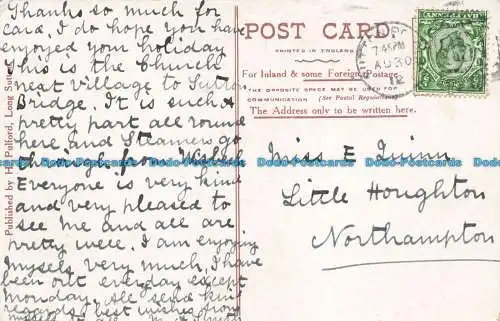 Thanks so much for
card. I do hope you have
enjoyed your holiday
This is the Church
next village to Sutton
Bridge. It is such a
pretty part all round
here and Steamers go
through from
Everyone is very kind
and very pleased to
see me and all are
pretty were. I am enjoying
myself very much, I have
been out everyday except
Monday. All send kind
regards best wishes from
myself to all
Published by H. Pulford, Long Sutton
POST CARD.
PRINTED IN ENGLAND
For Inland & some Foreign Postage
THE OPPOSITE SPACE MAY BE USED FOR
COMMUNICATION (See Postal Regulations)
The Address only to be written here.
7.45PM
AU 30
12
HALFPENNY
Miss E Quinn
Little Houghton
Northampton